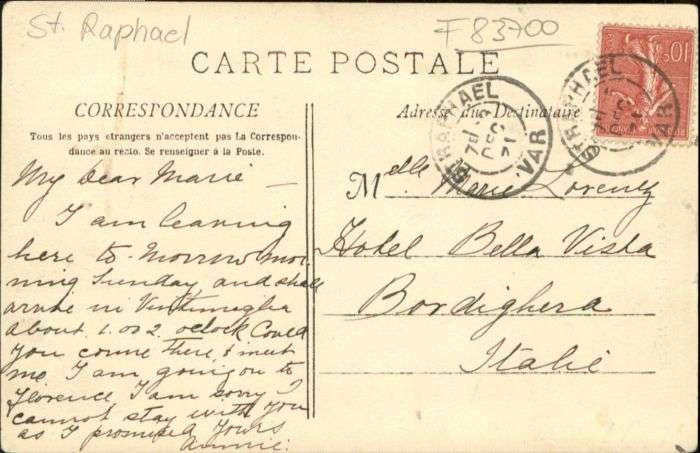 St. Raphael
F 83700
CARTE POSTALE
CORRESPONDANCE
Tous les pays étrangers n'acceptent pas La Correspon-
dance au recto. Se renseigner à la Poste.
Adresse du Destinataire
ST RAPHAEL
VAR
ST RAPHAEL
VAR
10c
My dear Marie —
I am leaving
here to-morrow mor-
ning Sunday and shall
arrive in Ventimeglia
about 1. or 2 oclock Could
you come there, & meet
me I am going to
Florence I am sorry I
cannot stay with you
as I promised Yours
Annie.
Melle Marie Lorentz
Hotel Bella Vista
Bordighera
Italie